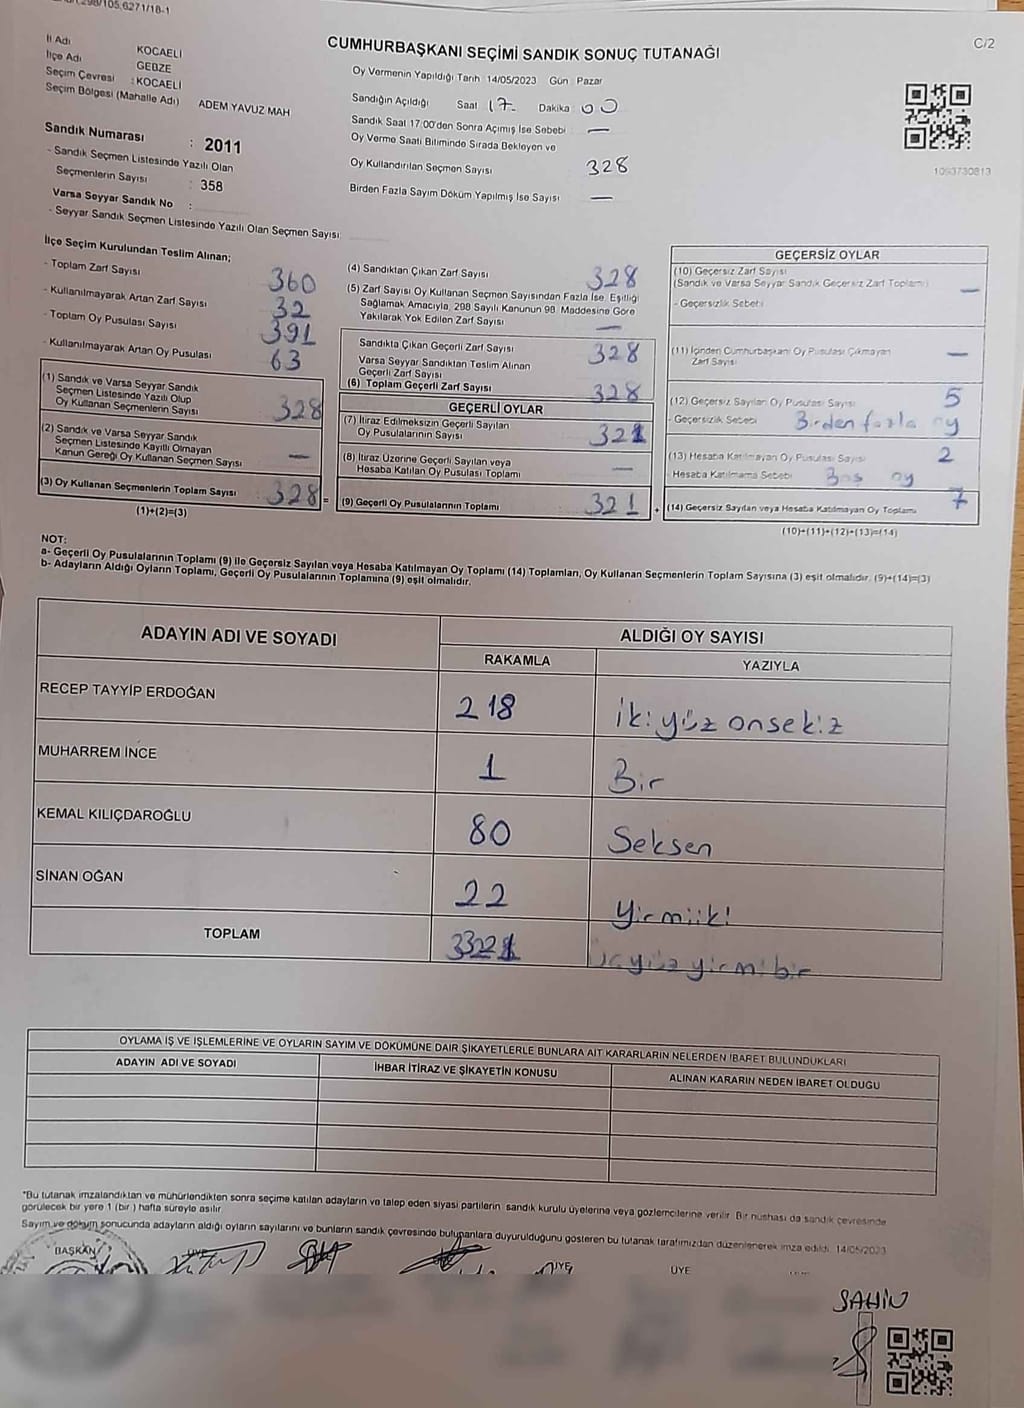 298/105,6271/18-1
C/2
CUMHURBAŞKANI SEÇİMİ SANDIK SONUÇ TUTANAĞI
İl Adı KOCAELİ
İlçe Adı GEBZE
Seçim Çevresi : KOCAELİ
Seçim Bölgesi (Mahalle Adı) ADEM YAVUZ MAH
Sandık Numarası : 2011
- Sandık Seçmen Listesinde Yazılı Olan
Seçmenlerin Sayısı : 358
Varsa Seyyar Sandık No :
- Seyyar Sandık Seçmen Listesinde Yazılı Olan Seçmen Sayısı:
Oy Vermenin Yapıldığı Tarih 14/05/2023 Gün Pazar
Sandığın Açıldığı Saat 17 Dakika 00
Sandık Saat 17:00'den Sonra Açımış İse Sebebi : —
Oy Verme Saati Bitiminde Sırada Bekleyen ve
Oy Kullandırılan Seçmen Sayısı 328
Birden Fazla Sayım Döküm Yapılmış İse Sayısı —
1093730813
İlçe Seçim Kurulundan Teslim Alınan;
- Toplam Zarf Sayısı 360
- Kullanılmayarak Artan Zarf Sayısı 32
- Toplam Oy Pusulası Sayısı 391
- Kullanılmayarak Artan Oy Pusulası 63
(1) Sandık ve Varsa Seyyar Sandık
Seçmen Listesinde Yazılı Olup
Oy Kullanan Seçmenlerin Sayısı 328
(2) Sandık ve Varsa Seyyar Sandık
Seçmen Listesinde Kayıtlı Olmayan
Kanun Gereği Oy Kullanan Seçmen Sayısı —
(3) Oy Kullanan Seçmenlerin Toplam Sayısı 328 =
(1)+(2)=(3)
(4) Sandıktan Çıkan Zarf Sayısı 328
(5) Zarf Sayısı Oy Kullanan Seçmen Sayısından Fazla İse, Eşitliği
Sağlamak Amacıyla, 298 Sayılı Kanunun 98. Maddesine Göre
Yakılarak Yok Edilen Zarf Sayısı —
Sandıkta Çıkan Geçerli Zarf Sayısı 328
Varsa Seyyar Sandıktan Teslim Alınan
Geçerli Zarf Sayısı
(6) Toplam Geçerli Zarf Sayısı 328
GEÇERLİ OYLAR
(7) İtiraz Edilmeksizin Geçerli Sayılan
Oy Pusulalarının Sayısı 321
(8) İtiraz Üzerine Geçerli Sayılan veya
Hesaba Katılan Oy Pusulası Toplamı —
(9) Geçerli Oy Pusulalarının Toplamı 321 +
GEÇERSİZ OYLAR
(10) Geçersiz Zarf Sayısı
(Sandık ve Varsa Seyyar Sandık Geçersiz Zarf Toplamı) —
- Geçersizlik Sebebi
(11) İçinden Cumhurbaşkanı Oy Pusulası Çıkmayan
Zarf Sayısı —
(12) Geçersiz Sayılan Oy Pusulası Sayısı 5
- Geçersizlik Sebebi Birden fazla oy
(13) Hesaba Katılmayan Oy Pusulası Sayısı 2
- Hesaba Katılmama Sebebi Boş oy
(14) Geçersiz Sayılan veya Hesaba Katılmayan Oy Toplamı 7
(10)+(11)+(12)+(13)=(14)
NOT:
a- Geçerli Oy Pusulalarının Toplamı (9) ile Geçersiz Sayılan veya Hesaba Katılmayan Oy Toplamı (14) Toplamları, Oy Kullanan Seçmenlerin Toplam Sayısına (3) eşit olmalıdır. (9)+(14)=(3)
b- Adayların Aldığı Oyların Toplamı, Geçerli Oy Pusulalarının Toplamına (9) eşit olmalıdır.
ADAYIN ADI VE SOYADI ALDIĞI OY SAYISI
RAKAMLA YAZIYLA
RECEP TAYYİP ERDOĞAN 218 ikiyüz onsekiz
MUHARREM İNCE 1 Bir
KEMAL KILIÇDAROĞLU 80 Seksen
SİNAN OĞAN 22 Yirmiiki
TOPLAM Üçyüzyirmibir
OYLAMA İŞ VE İŞLEMLERİNE VE OYLARIN SAYIM VE DÖKÜMÜNE DAİR ŞİKAYETLERLE BUNLARA AİT KARARLARIN NELERDEN İBARET BULUNDUKLARI
ADAYIN ADI VE SOYADI İHBAR İTİRAZ VE ŞİKAYETİN KONUSU ALINAN KARARIN NEDEN İBARET OLDUĞU
*Bu tutanak imzalandıktan ve mühürlendikten sonra seçime katılan adayların ve talep eden siyasi partilerin sandık kurulu üyelerine veya gözlemcilerine verilir. Bir nüshası da sandık çevresinde
görülecek bir yere 1 (bir) hafta süreyle asılır.
Sayım ve döküm sonucunda adayların aldığı oyların sayılarını ve bunların sandık çevresinde bulunanlara duyurulduğunu gösteren bu tutanak tarafımızdan düzenlenerek imza edildi. 14/05/2023
BAŞKAN ÜYE ÜYE ÜYE
ŞAHİN